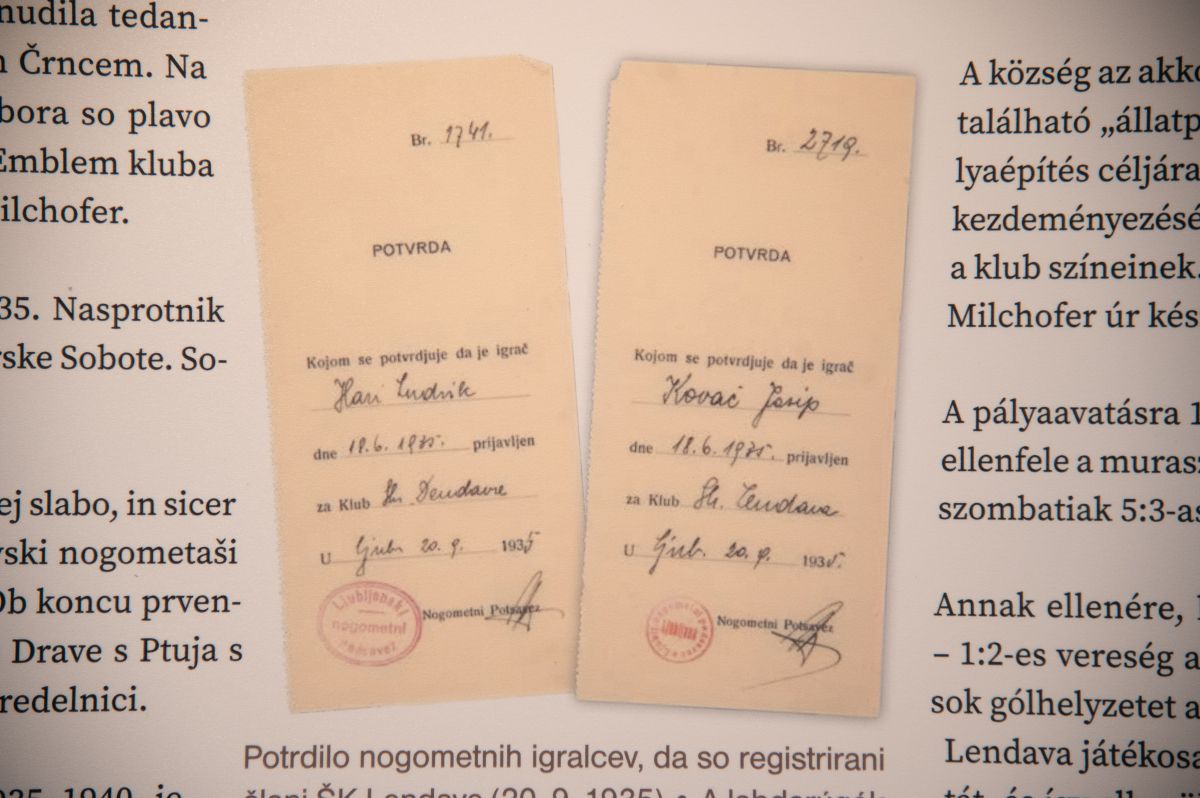 nudila tedan-
Črncem. Na
bora so plavo
Emblem kluba
ilchofer.
35. Nasprotnik
rske Sobote. So-
ej slabo, in sicer
vski nogometaši
Ob koncu prven-
Drave s Ptuja s
redelnici.
935 1940 je
Br. 1741.
POTVRDA
Kojom se potvrdjuje da je igrač
Hari Ludvik
dne 18.6. 1935. prijavljen
za Klub Šk. Dendavre
U Ljub. 20. 9. 1935
Nogometni Potsavez
Ljubljanski
nogometni
podsavez
Br. 2719.
POTVRDA
Kojom se potvrdjuje da je igrač
Kovač Josip
dne 18.6. 1935. prijavljen
za Klub Šk. Lendava
U Ljub. 20. 9. 1935.
Nogometni Potsavez
Potrdilo nogometnih igralcev, da so registrirani
člani ŠK Lendava (20. 9. 1935) • A labdarúgók
A község az akko
található „állatp
lyaépítés céljára
kezdeményezésé
a klub színeinek.
Milchofer úr kés
A pályaavatásra 1
ellenfele a murasz
szombatiak 5:3-as
Annak ellenére,
– 1:2-es vereség a
sok gólhelyzetet a
Lendava játékosa